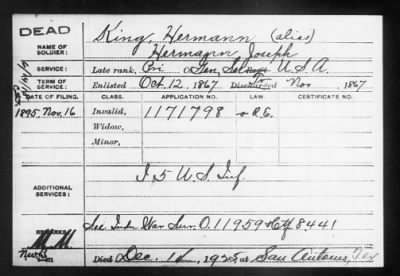 DEAD
King, Hermann (alias)
NAME OF SOLDIER:
Hermann, Joseph
SERVICE:
Late rank, Pri Gen, Sel U.S.A.
TERM OF SERVICE:
Enlisted Oct. 12, 1867 Discharged Nov, 1867
DATE OF FILING. CLASS. APPLICATION NO. LAW. CERTIFICATE NO.
1895, Nov. 16 Invalid, 1171798
Widow,
Minor,
ADDITIONAL SERVICES:
I, 5 U.S. Inf.
REMARKS:
See Indn War Surv. O. 11959 Ctf 8441
Died Dec. 1925 at San Antonio, Tex